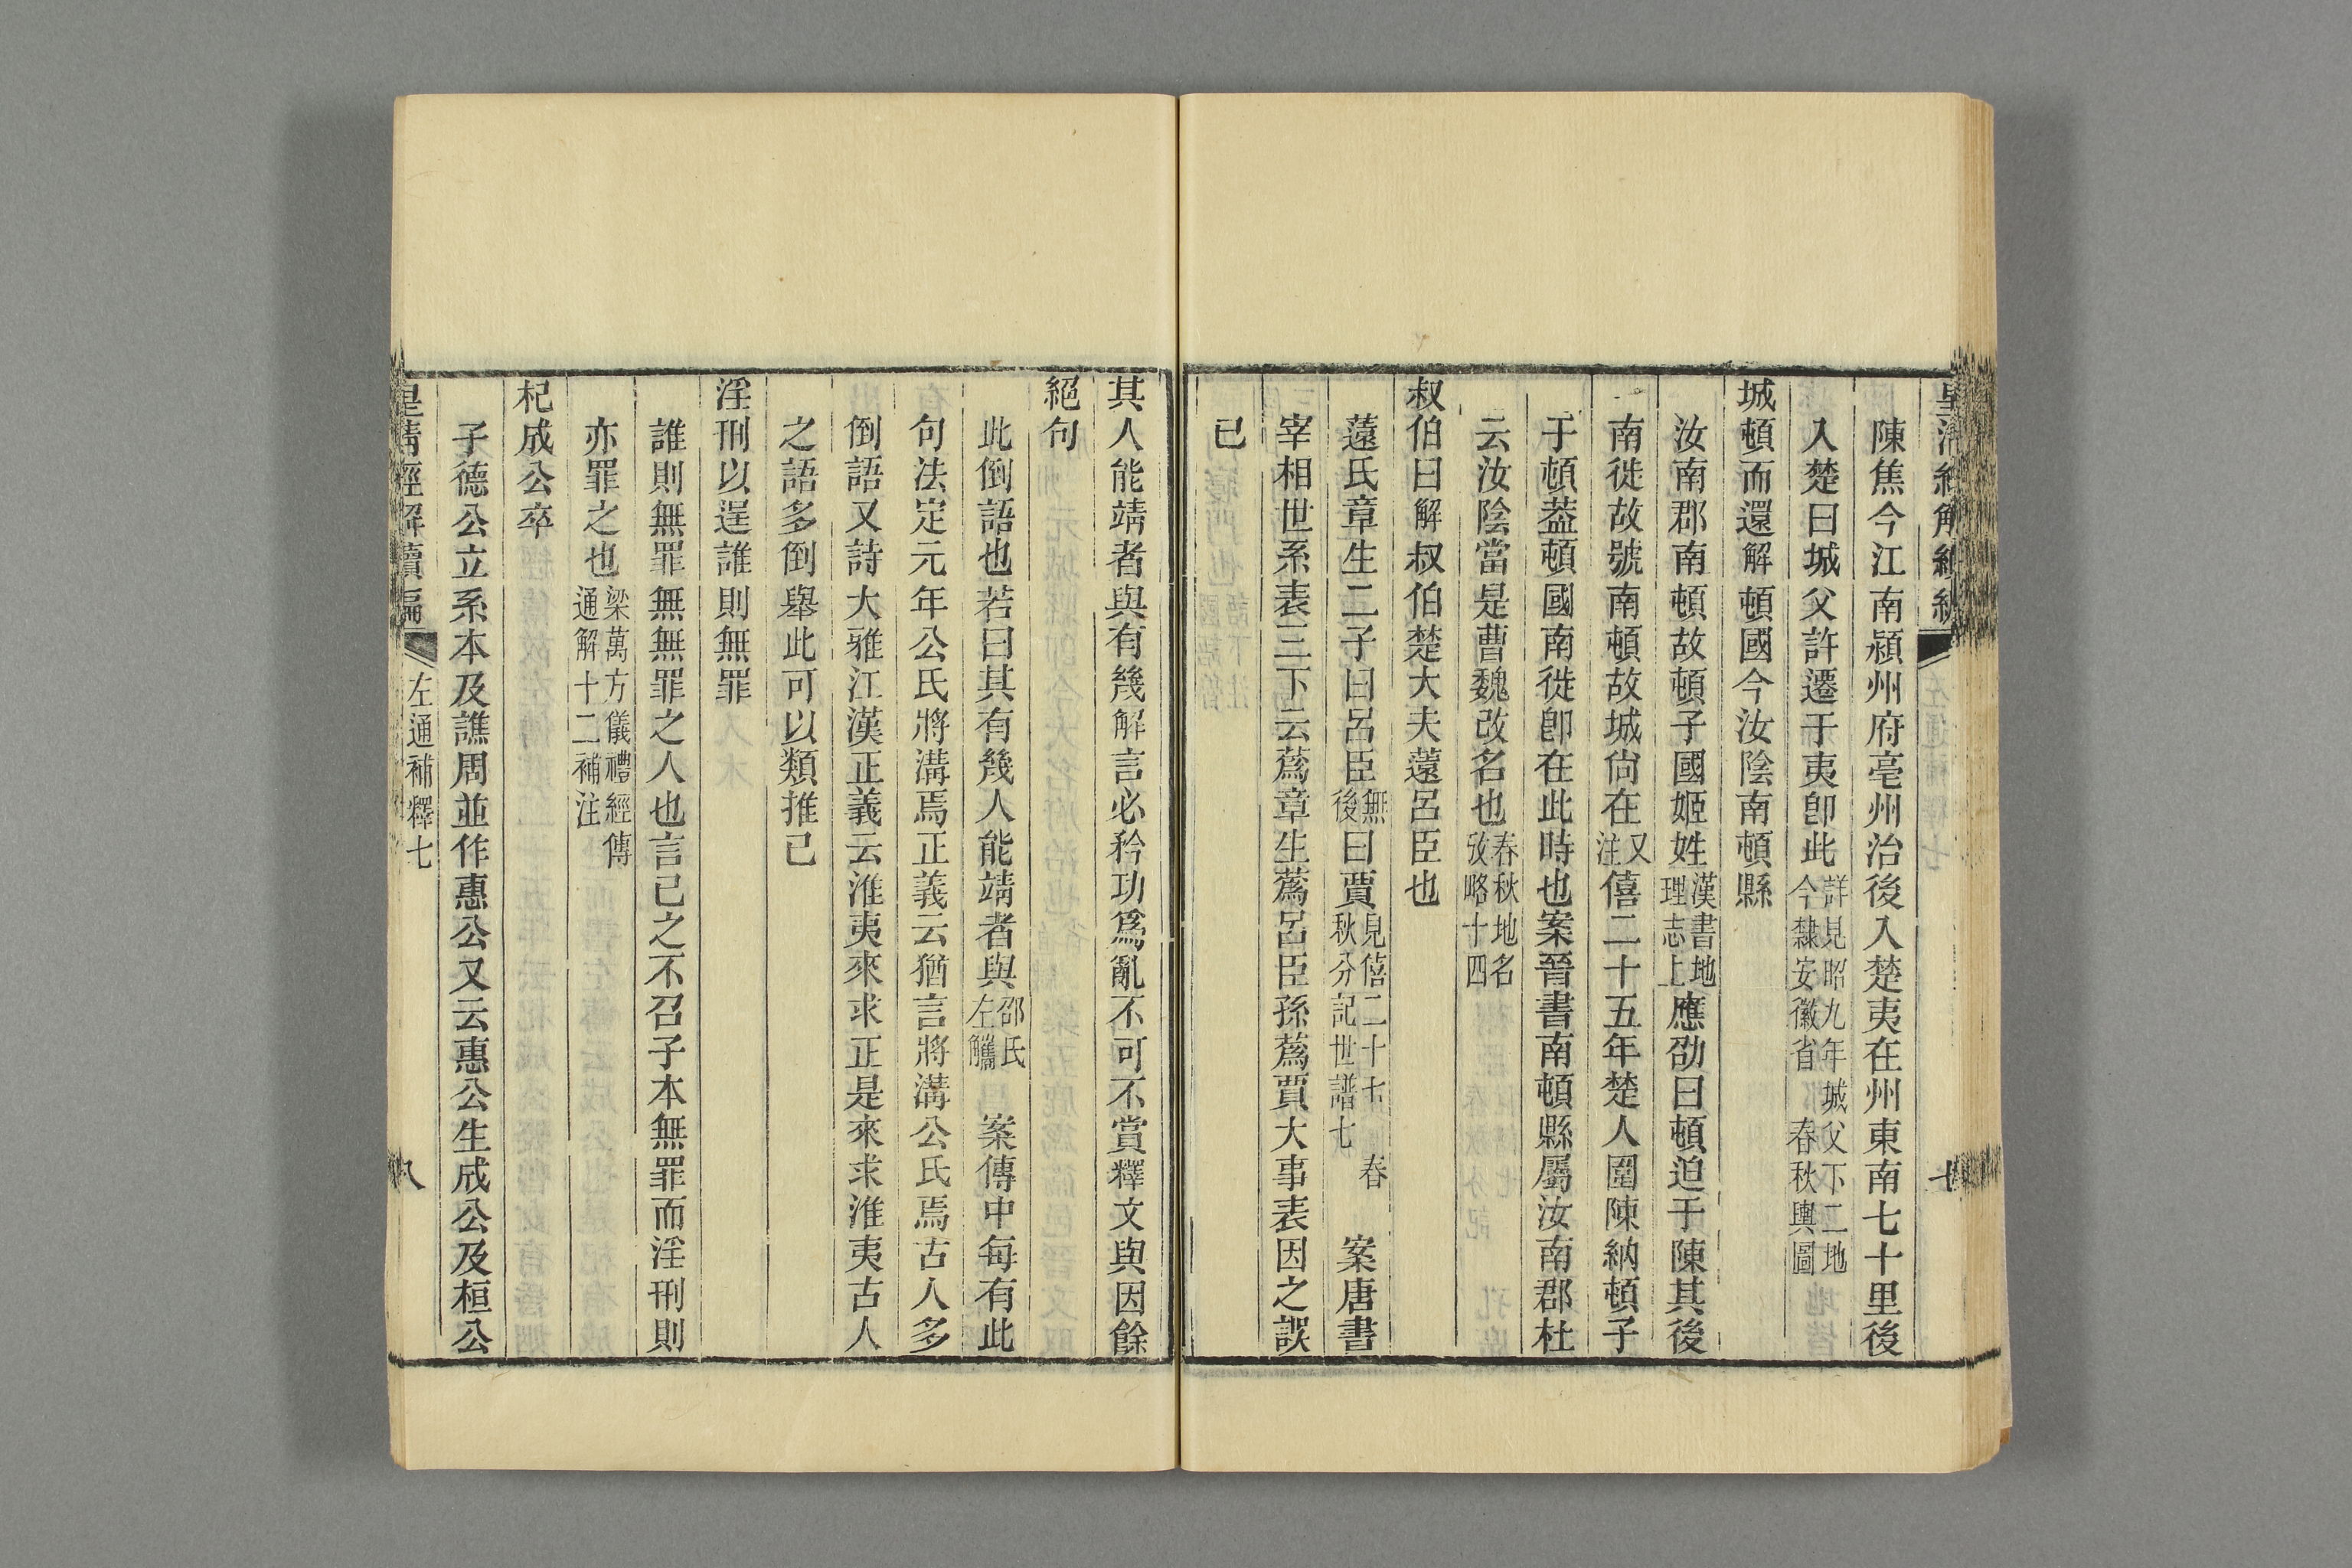 陳焦今江南潁州府亳州治後入楚夷在州東南七十里後
入楚曰城父許遷于夷卽此詳見昭九年城父下二地今隸安徽省春秋輿圖
城頓而還解頓國今汝陰南頓縣
汝南郡南頓故頓子國姬姓漢書地理志上應劭曰頓迫于陳其後
南徙故號南頓故城尙在又注僖二十五年楚人圍陳納頓子
于頓葢頓國南徙卽在此時也案晉書南頓縣屬汝南郡杜
云汝陰當是曹魏改名也春秋地名攷略十四
叔伯曰解叔伯楚大夫薳呂臣也
薳氏章生二子曰呂臣無後曰賈見僖二十七春秋分記世譜七案唐書
宰相世系表三下云蒍章生蒍呂臣孫蒍賈大事表因之誤
已
七
其人能靖者與有幾解言必矜功爲亂不可不賞釋文與因餘
絕句
此倒語也若曰其有幾人能靖者與邵氏左觿案傳中每有此
句法定元年公氏將溝焉正義云猶言將溝公氏焉古人多
倒語又詩大雅江漢正義云淮夷來求正是來求淮夷古人
之語多倒舉此可以類推已
淫刑以逞誰則無罪
誰則無罪無無罪之人也言己之不召子本無罪而淫刑則
亦罪之也梁萬方儀禮經傳通解十二補注
杞成公卒
子德公立系本及譙周並作惠公又云惠公生成公及桓公
皇清經解續編 左通補釋七 八